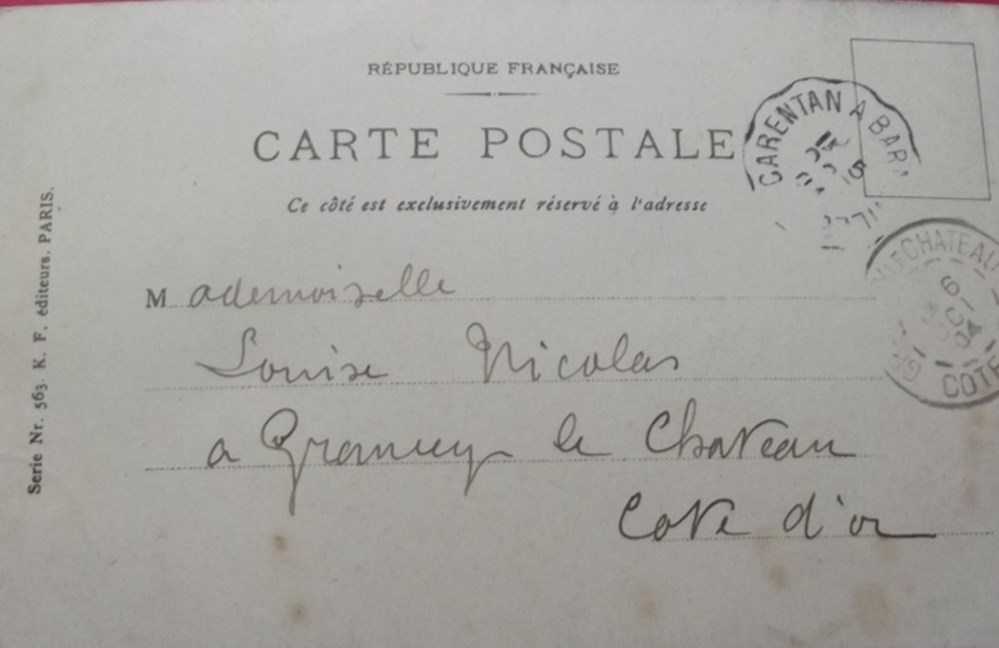 RÉPUBLIQUE FRANÇAISE
CARTE POSTALE
Ce côté est exclusivement réservé à l'adresse
CARENTAN A BAR
CHATEAU
6
04
COTE
Mademoiselle
Louise Nicolas
a Grancey le Chateau
Cote d'or
Serie Nr. 563. K. F. éditeurs. PARIS.